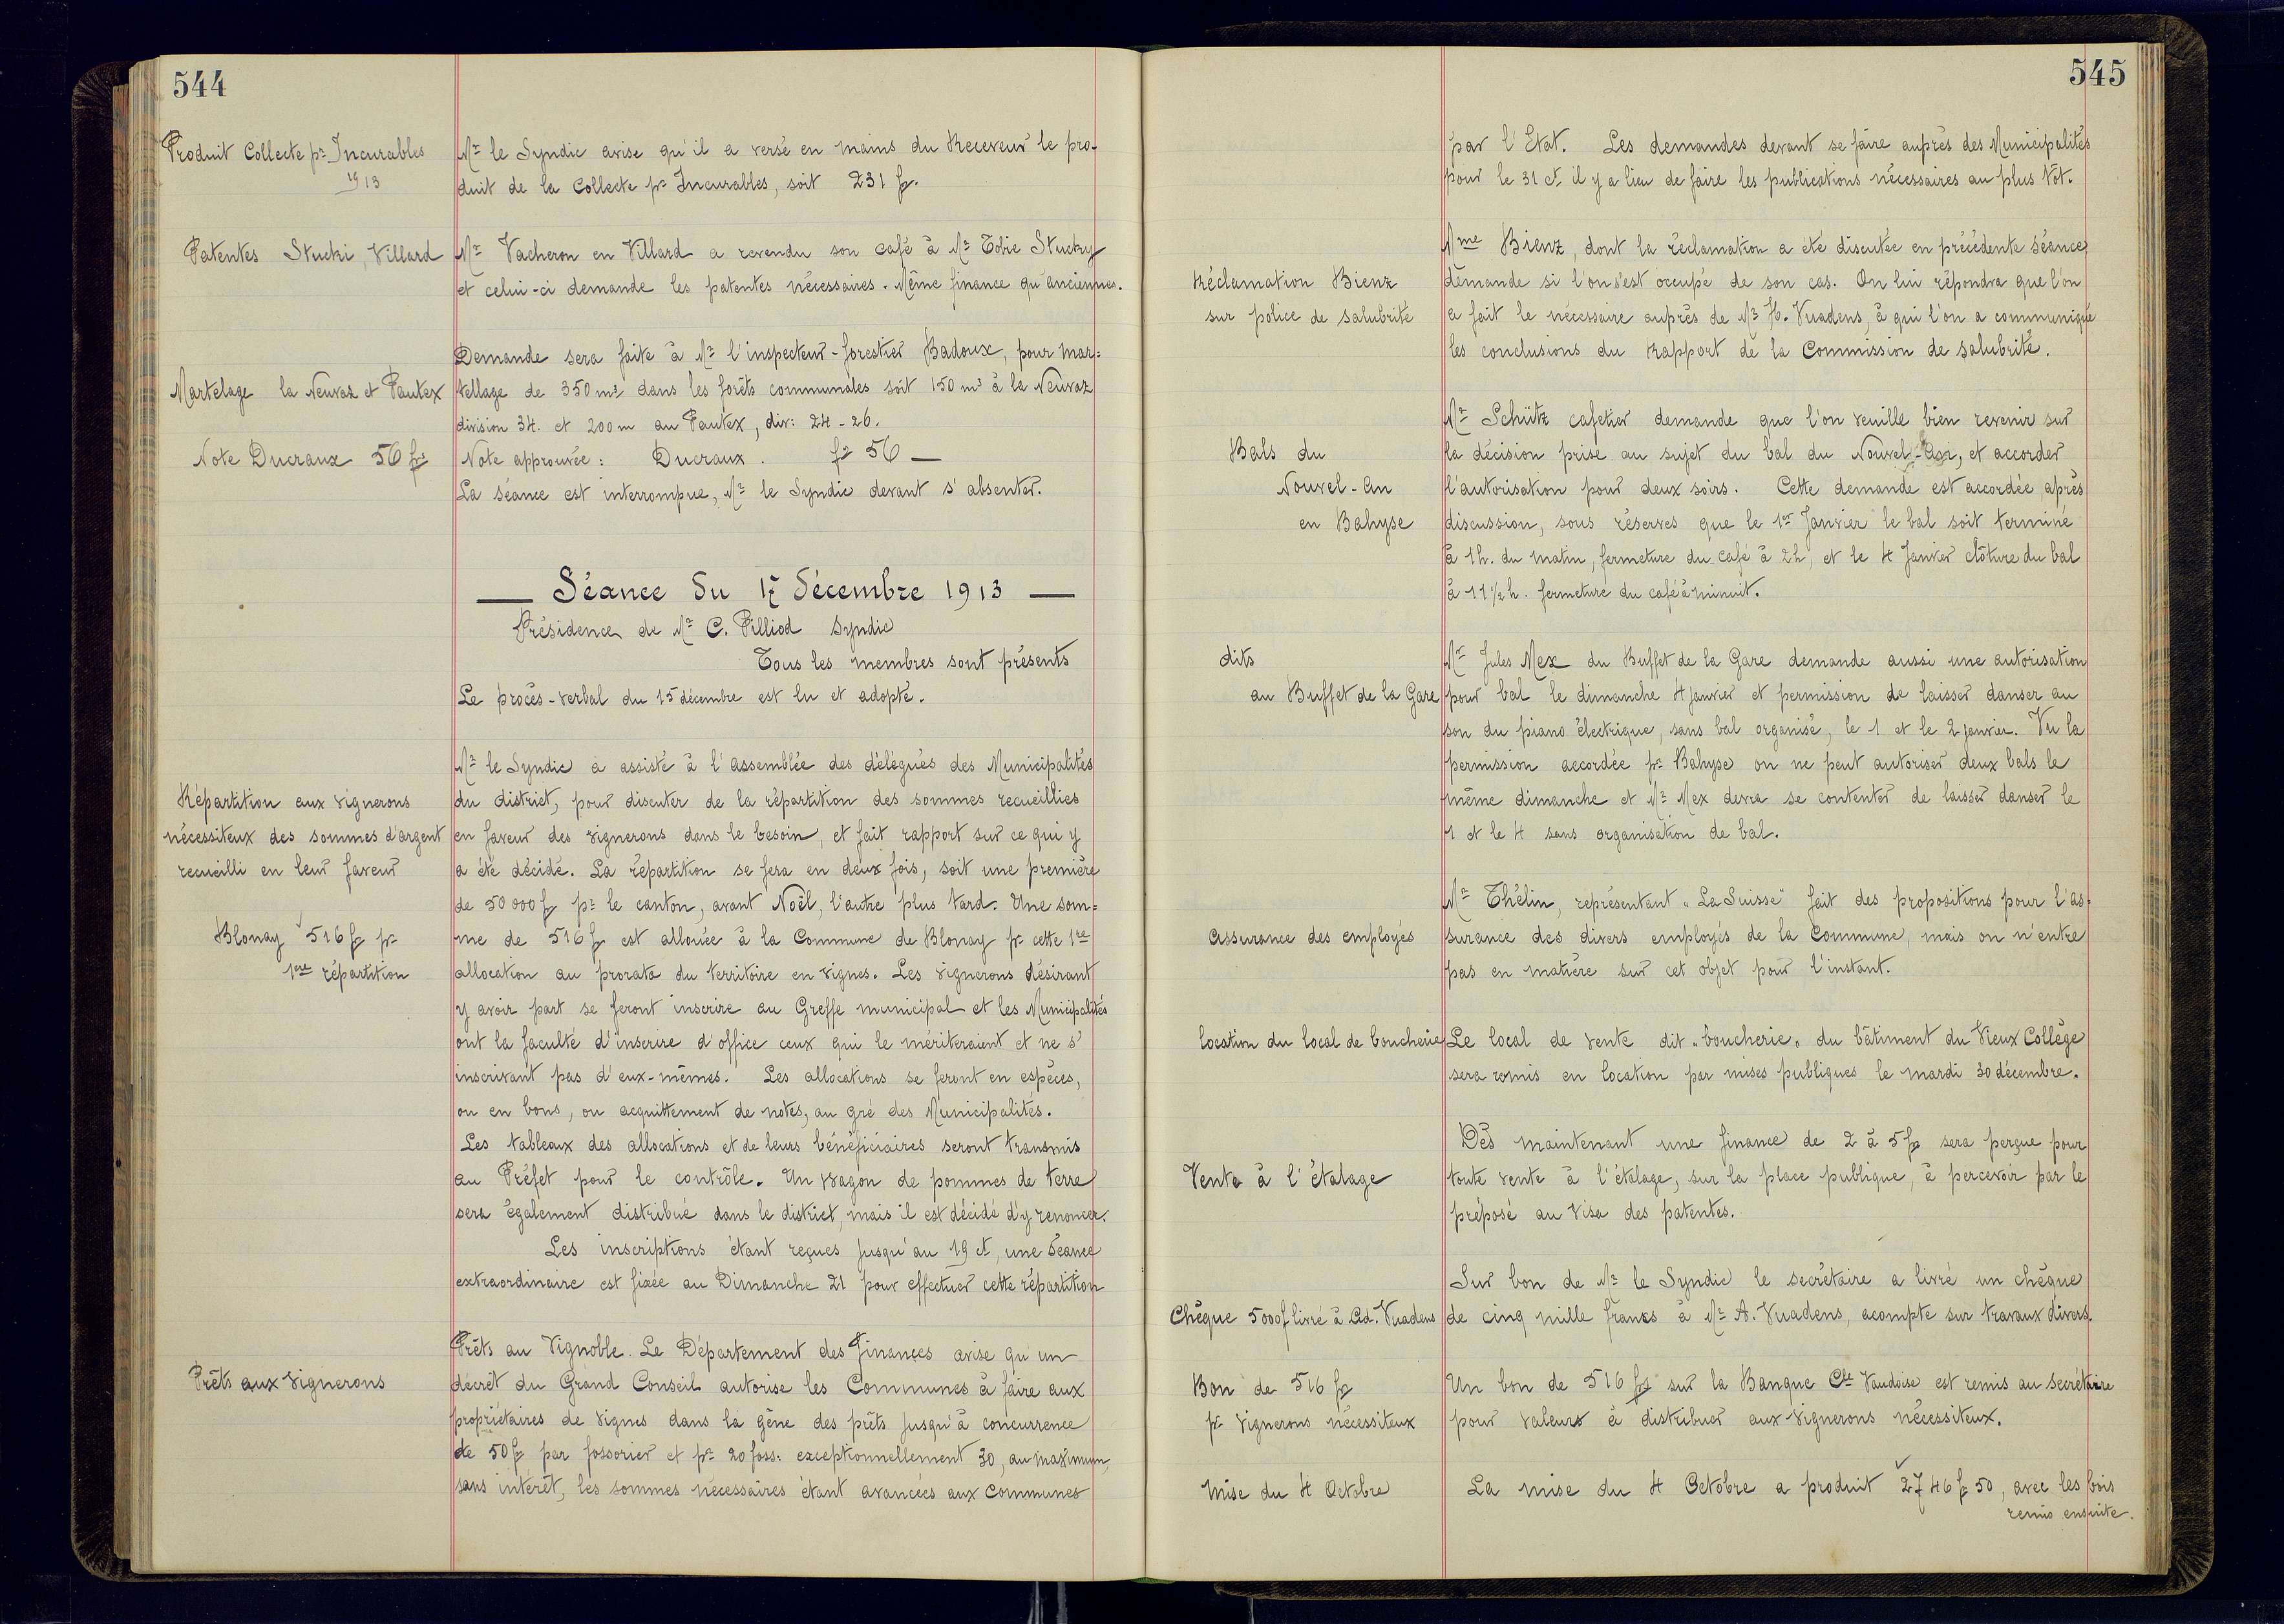 544
Produit Collecte pr Incurables
1913
Mr le Syndic avise qu'il a versé en mains du Receveur le pro-
duit de la Collecte pr Incurables, soit 231 fr.
Patentes Stucki, Villard
Mr Vacheron en Villard a revendu son café à Mr Tobie Stucky
et celui-ci demande les patentes nécessaires. Même finance qu'anciennes.
Martelage la Neuvaz et Pautex
Demande sera faite à Mr l'inspecteur-forestier Badoux, pour mar=
tellage de 350 m3 dans les forêts communales soit 150 m3 à la Neuvaz
division 34. et 200 m au Pautex, div: 24-26.
Note Ducraux 56 frs
Note approuvée: Ducraux. fr 56 —
La séance est interrompue, Mr le Syndic devant s'absenter.
— Séance du 17 décembre 1913 —
Présidence de Mr C. Pilliod Syndic
Tous les membres sont présents
Le procès-verbal du 15 décembre est lu et adopté.
Répartition aux vignerons
nécessiteux des sommes d'argent
recueilli en leur faveur
Blonay 516 fr pr
1ère répartition
Mr le Syndic a assisté à l'assemblée des délégués des Municipalités
du district, pour discuter de la répartition des sommes recueillies
en faveur des vignerons dans le besoin, et fait rapport sur ce qui y
a été décidé. La répartition se fera en deux fois, soit une première
de 50 000 fr pr le canton, avant Noël, l'autre plus tard. Une som=
me de 516 fr est allouée à la Commune de Blonay pr cette 1re
allocation au prorata du territoire en vignes. Les vignerons désirant
y avoir part se feront inscrire au Greffe municipal et les Municipalités
ont la faculté d'inscrire d'office ceux qui le mériteraient et ne s'
inscrivant pas d'eux-mêmes. Les allocations se feront en espèces,
ou en bons, ou acquittement de notes, au gré des Municipalités.
Les tableaux des allocations et de leurs bénéficiaires seront transmis
au Préfet pour le contrôle. Un wagon de pommes de terre
sera également distribué dans le district, mais il est décidé d'y renoncer.
Les inscriptions étant reçues jusqu'au 19 ct, une séance
extraordinaire est fixée au Dimanche 21 pour effectuer cette répartition
Prêts aux vignerons
Prêts au Vignoble. Le Département des Finances avise qu'un
décret du Grand Conseil autorise les Communes à faire aux
propriétaires de vignes dans la gêne des prêts jusqu'à concurrence
de 50 fr par fossorier et pr 20 foss: exceptionnellement 30, au maximum,
sans intérêt, les sommes nécessaires étant avancées aux Communes
545
par l'Etat. Les demandes devant se faire auprès des Municipalités
pour le 31 ct il y a lieu de faire les publications nécessaires au plus tôt.
Réclamation Bienz
sur police de salubrité
Mme Bienz, dont la réclamation a été discutée en précédente séance,
demande si l'on s'est occupé de son cas. On lui répondra que l'on
a fait le nécessaire auprès de Mr H. Vuadens, à qui l'on a communiqué
les conclusions du Rapport de la Commission de salubrité.
Bals du
Nouvel-An
en Bahyse
Mr Schütz cafetier demande que l'on veuille bien revenir sur
la décision prise au sujet du bal du Nouvel-An, et accorder
l'autorisation pour deux soirs. Cette demande est accordée, après
discussion, sous réserves que le 1er Janvier le bal soit terminé
à 1 h. du matin, fermeture du café à 2 h, et le 4 Janvier clôture du bal
à 11 1/2 h. fermeture du café à minuit.
dits
au Buffet de la Gare
Mr Jules Mex du Buffet de la Gare demande aussi une autorisation
pour bal le dimanche 4 janvier et permission de laisser danser au
son du piano électrique, sans bal organisé, le 1 et le 2 janvier. Vu la
permission accordée pr Bahyse on ne peut autoriser deux bals le
même dimanche et Mr Mex devra se contenter de laisser danser le
1 et le 4 sans organisation de bal.
Assurance des employés
Mr Thélin, représentant "La Suisse" fait des propositions pour l'as=
surance des divers employés de la Commune, mais on n'entre
pas en matière sur cet objet pour l'instant.
location du local de boucherie
Le local de vente dit "boucherie" du bâtiment du Vieux Collège
sera remis en location par mises publiques le mardi 30 décembre.
Vente à l'étalage
Dès maintenant une finance de 2 à 5 fr sera perçue pour
toute vente à l'étalage, sur la place publique, à percevoir par le
préposé au visa des patentes.
Chèque 5000 f livré à Ad. Vuadens
Sur bon de Mr le Syndic le secrétaire a livré un chèque
de cinq mille francs à Mr A. Vuadens, acompte sur travaux divers.
Bon de 516 fr
pr vignerons nécessiteux
Un bon de 516 frs sur la Banque Cle Vaudoise est remis au secrétaire
pour valeurs à distribuer aux vignerons nécessiteux.
Mise du 4 Octobre
La mise du 4 Octobre a produit 2746 fr 50, avec les bois
remis ensuite.